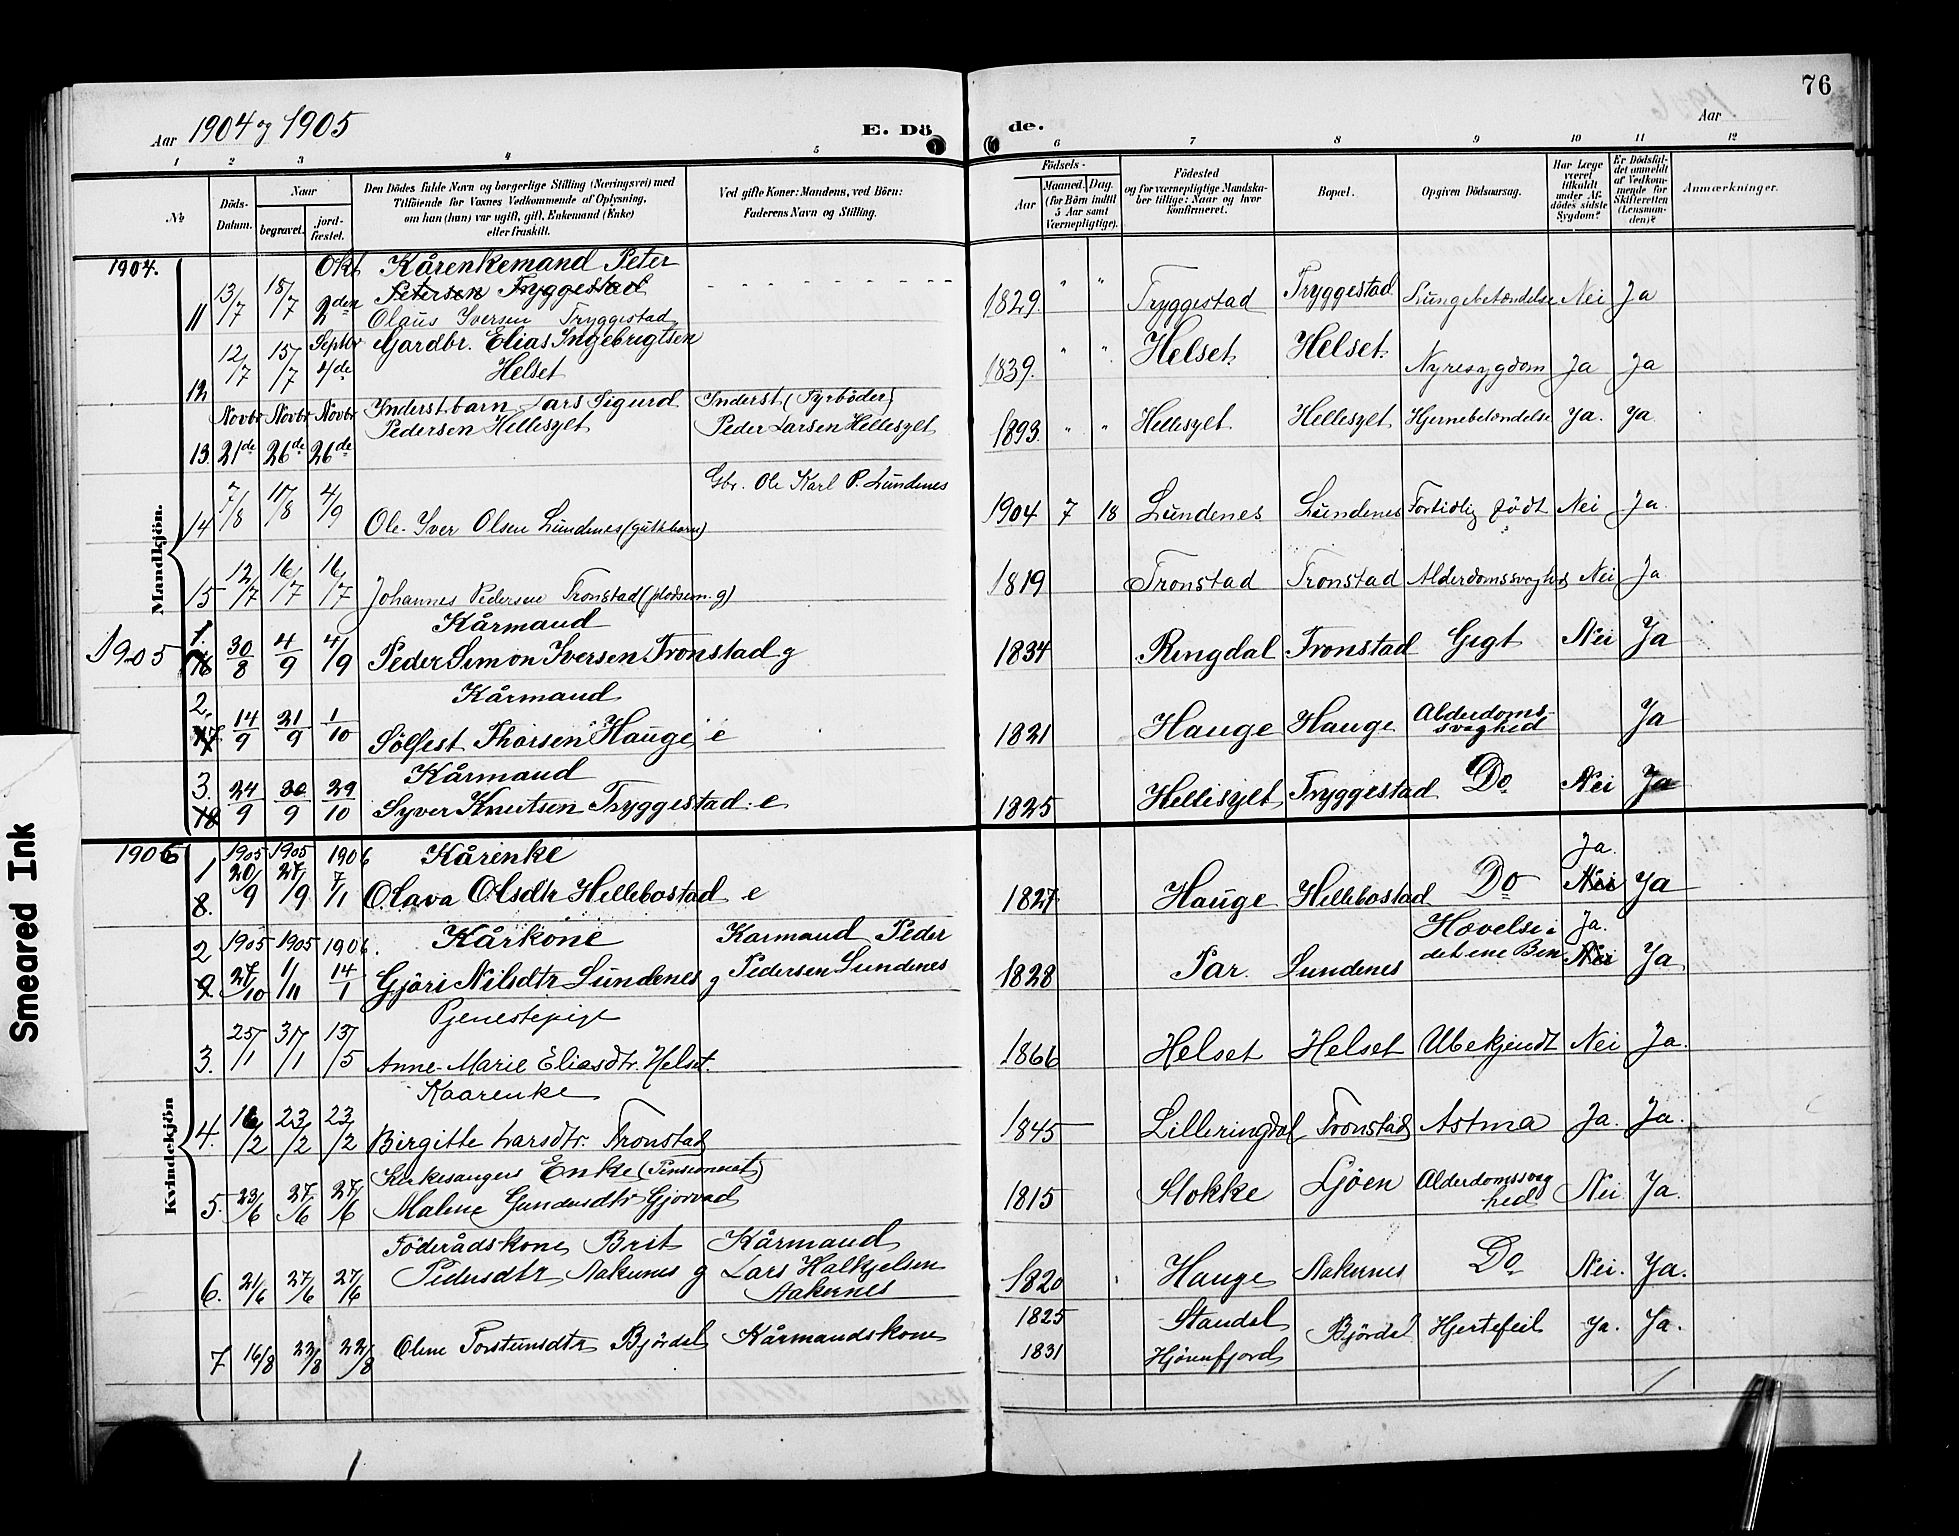 76
Aar 1904 og 1905
E. Dö de.
Aar
1 2 3 4 5 6 7 8 9 10 11 12
No
Döds-Datum.
Naar
begravet.
jord-fæstet.
Den Dödes fulde Navn og borgerlige Stilling (Næringsvei) med
Tilföiende for Voxnes Vedkommende af Oplysning,
om han (hun) var ugift, gift, Enkemand (Enke)
eller fraskilt.
Ved gifte Koner: Mandens, ved Börn:
Faderens Navn og Stilling.
Födsels-
Aar
Maaned. Dag.
(for Börn indtil
5 Aar samt
Værnepligtige).
Födested
og for værnepligtige Mandska-
ber tillige: Naar og hvor
konfirmeret.
Bopæl.
Opgiven Dödsaarsag.
Har Læge
været
tilkaldt
under Af-
dödes sidste
Sygdom?
Er Dödsfal-
det anmeldt
af Vedkom-
mende for
Skifteretten
(Lensman-
den)?
Anmærkninger.
Mandkjön.
1904.
Okt Kårenkemand Peter
Petersen Tryggestad
11 13/7 18/7 2den Olaus Iversen Tryggestad 1829 " " Tryggestad Tryggestad Lungebetændelse Nei Ja
12 12/7 15/7 Septbr 4de Gardbr. Elias Ingebrigtsen
Helset 1839. " " Helset Helset Nyresygdom Ja Ja
Novbr Novbr Novbr Inderst barn Lars Sigurd Inderst (Fyrböder)
13. 21de 26de 26de Pedersen Hellesylt Peder Larsen Hellesylt 1893 " " Hellesylt Hellesylt Hjernebetændelse Ja. Ja.
Gbr. Ole Karl P. Lundenes
14 7/8 17/8 4/9 Ole Iver Olsen Lundenes (gutkbarn) 1904 7 18 Lundenes Lundenes Fortidlig födt Nei Ja.
15 12/7 16/7 16/7 Johannes Pedersen Tronstad g) 1819 Tronstad Tronstad Alderdomssvaghed Nei Ja
1905
Kårmand
1. 16 30/8 4/9 4/9 Peder Simon Iversen Tronstad g 1834 Ringdal Tronstad Gigt Nei Ja
Kårmand
2. 17 14/9 21/9 1/10 Sölfest Thorsen Hauge e 1821 Hauge Hauge Alderdoms-
svaghed Ja
Kårmand
3. 18 24/9 30/9 29/10 Syver Knutsen Tryggestad. e 1825 Hellesylt Tryggestad Do Nei Ja
Kvindekjön
1906
1905 1905 1906 Kårenke Ja.
1 8. 20/9 27/9 7/1 Olava Olsdtr Hellebostad e 1827 Hauge Hellebostad Do Nei Ja
1905 1905 1906. Kårkone Karmand Peder Hovelse i Ja.
2 9. 27/10 1/11 14/1 Gjöri Nilsdtr Lundenes g Pedersen Lundenes 1828 Par. Lundenes det ene Ben Nei Ja
Tjenestepige
3. 25/1 31/1 13/5 Anne Marie Eliasdtr. Helset. 1866 Helset Helset Ubekjendt Nei Ja.
Kaarenke
4. 16/2 23/2 23/2 Birgitte Larsdtr. Tronstad 1845 Lilleringdal Tronstad Astma Ja. Ja.
Kirkesangers Enke (Pensioneret)
5. 23/6 27/6 27/6 Malene Gundersdtr Gjorvad 1815 Stokke Ljöen Alderdomssvag
hed Nei Ja.
Föderådskone Brit Kårmand
6. 21/6 27/6 27/6 Pedersdtr Aakernes g Lars Halkjelsen
Aakernes 1820 Hauge Aakernes Do Nei. Ja.
7 16/8 22/8 22/8 Oline Torstensdtr Björdal Kårmandskone 1825 Standal Björdal Hjertefeil Ja. Ja.
1831 Hjörenfjord
Smeared Ink